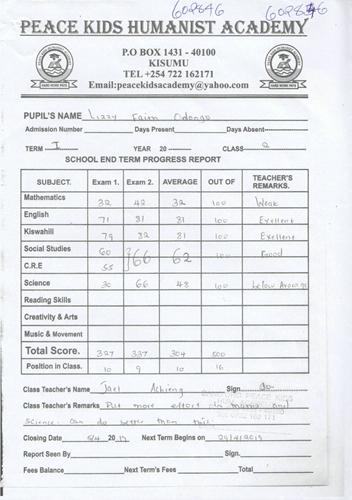 602846 602846
PEACE KIDS HUMANIST ACADEMY
P.O BOX 1431 - 40100
KISUMU
TEL +254 722 162171
Email:peacekidsacademy@yahoo.com
PUPIL'S NAME Lizzy Faim Odongo
Admission Number Days Present Days Absent
TERM I YEAR 20 CLASS 2
SCHOOL END TERM PROGRESS REPORT
SUBJECT. Exam 1. Exam 2. AVERAGE OUT OF TEACHER'S REMARKS.
Mathematics 32 42 32 100 Weak
English 71 81 81 100 Exellent
Kiswahili 79 82 81 100 Exellent
Social Studies 60 66 62 100 Good
C.R.E 55
Science 30 66 48 100 below Average
Reading Skills
Creativity & Arts
Music & Movement
Total Score. 327 337 304 500
Position in Class. 10 9 10 16
Class Teacher's Name Jael Achieng Sign.
Class Teacher's Remarks Put more effort in maths and
Science. Can do better than this.
Closing Date 5/4 20 Next Term Begins on 29/4/2019
Report Seen By Sign.
Fees Balance Next Term's Fees Total